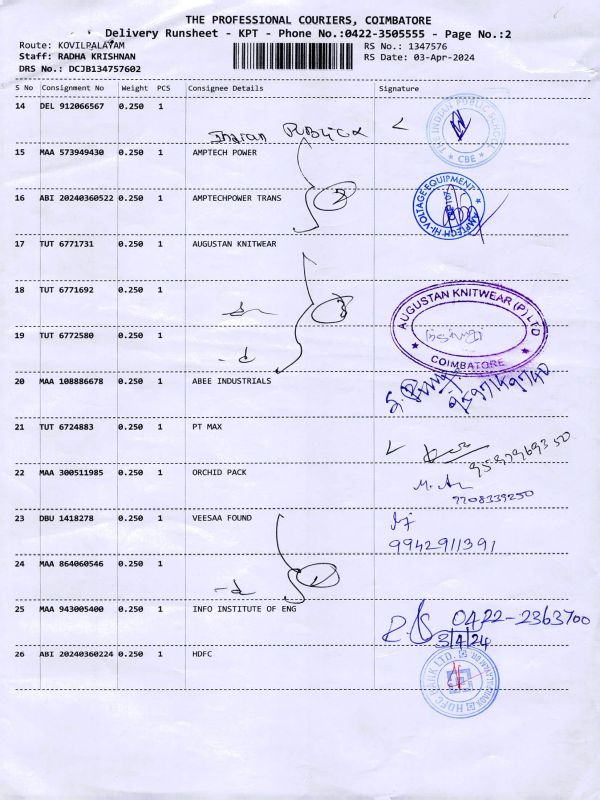 THE PROFESSIONAL COURIERS, COIMBATORE
Delivery Runsheet - KPT - Phone No.:0422-3505555 - Page No.:2
Route: KOVILPALAYAM RS No.: 1347576
Staff: RADHA KRISHNAN RS Date: 03-Apr-2024
DRS No.: DCJB134757602
S No Consignment No Weight PCS Consignee Details Signature
14 DEL 912066567 0.250 1
THE INDIAN PUBLIC SCHOOL
★ CBE ★
15 MAA 573949430 0.250 1 AMPTECH POWER
2
16 ABI 20240360522 0.250 1 AMPTECHPOWER TRANS
AMPTECH HI-VOLTAGE EQUIPMENT
17 TUT 6771731 0.250 1 AUGUSTAN KNITWEAR
18 TUT 6771692 0.250 1
3
AUGUSTAN KNITWEAR (P) LTD
★ COIMBATORE ★
19 TUT 6772580 0.250 1
20 MAA 108886678 0.250 1 ABEE INDUSTRIALS
21 TUT 6724883 0.250 1 PT MAX
22 MAA 300511985 0.250 1 ORCHID PACK
9708339250
23 DBU 1418278 0.250 1 VEESAA FOUND
9942911391
24 MAA 864060546 0.250 1
25 MAA 943005400 0.250 1 INFO INSTITUTE OF ENG
0422-2363700
3/4/24
26 ABI 20240360224 0.250 1 HDFC
HDFC BANK LTD.